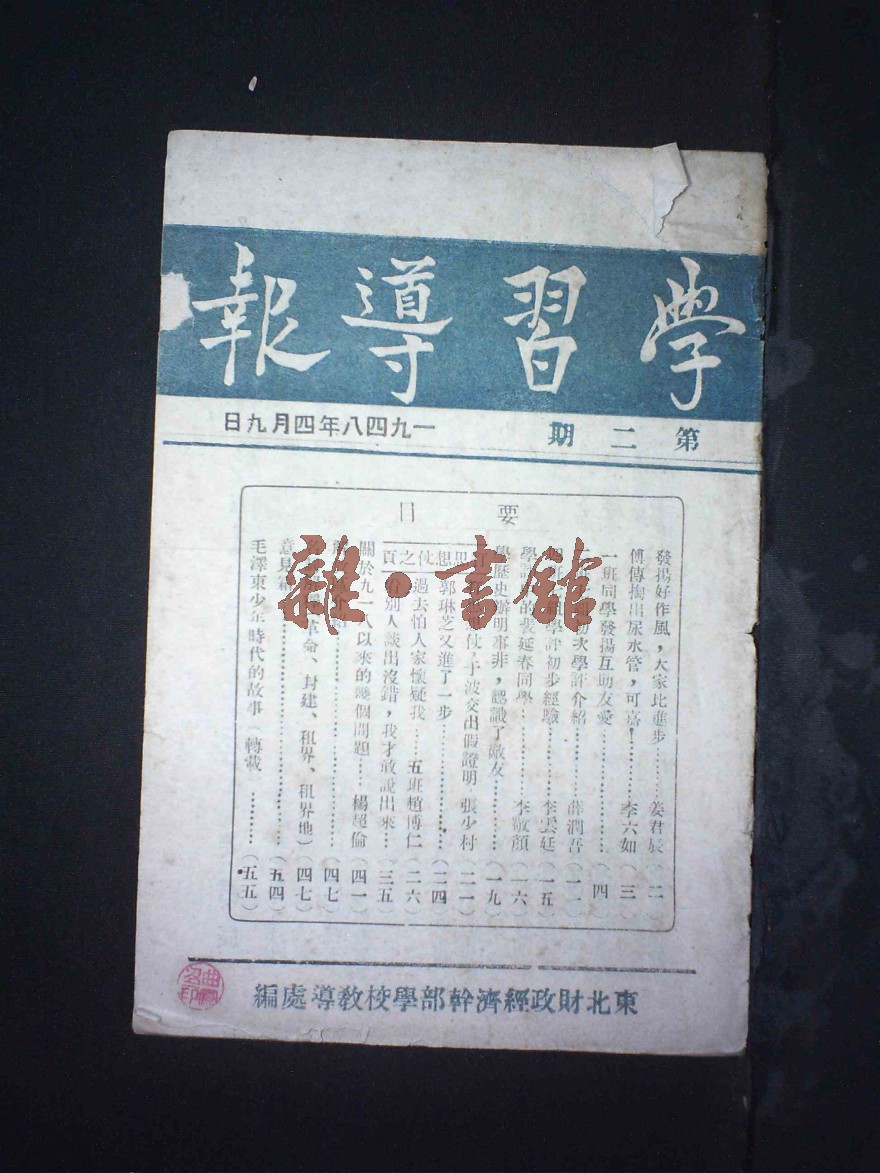 學習導報
第二期 一九四八年四月九日
要目
發揚好作風，大家比進步………姜君辰（二）
傅傳掏出尿水管，可嘉！………李六如（三）
一班同學發揚互助友愛………（四）
次學評介紹………薛潤吾（一一）
學評初步經驗………李雲廷（一五）
學 的裴延春同學………李敬顏（一六）
學歷史 明事非，認識了敵友………（一九）
仗，于波交出假證明 張少村（二一）
郭琳芝又進了一步………（二四）
過去怕人家懷疑我……五班趙博仁（二六）
別人談出沒錯，我才敢說出來……（三五）
思想仗之頁
關於九一八以來的幾個問題……楊超倫（四一）
………（四七）
革命、封建、租界、租界地）（四七）
意見箱………（五四）
毛澤東少年時代的故事（轉載………（五五）
東北財政經濟幹部學校教導處編
雜·書館